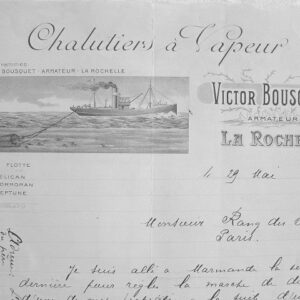 Chalutiers à Vapeur
BOUSQUET - ARMATEUR - LA ROCHELLE
VICTOR BOUSQ
ARMATEUR
LA ROCHE
FLOTTE
PELICAN
CORMORAN
NEPTUNE
le 29 Mai
Monsieur Rang des
Paris.
Je suis allé à Marmande la se
dernière pour régler la marche de